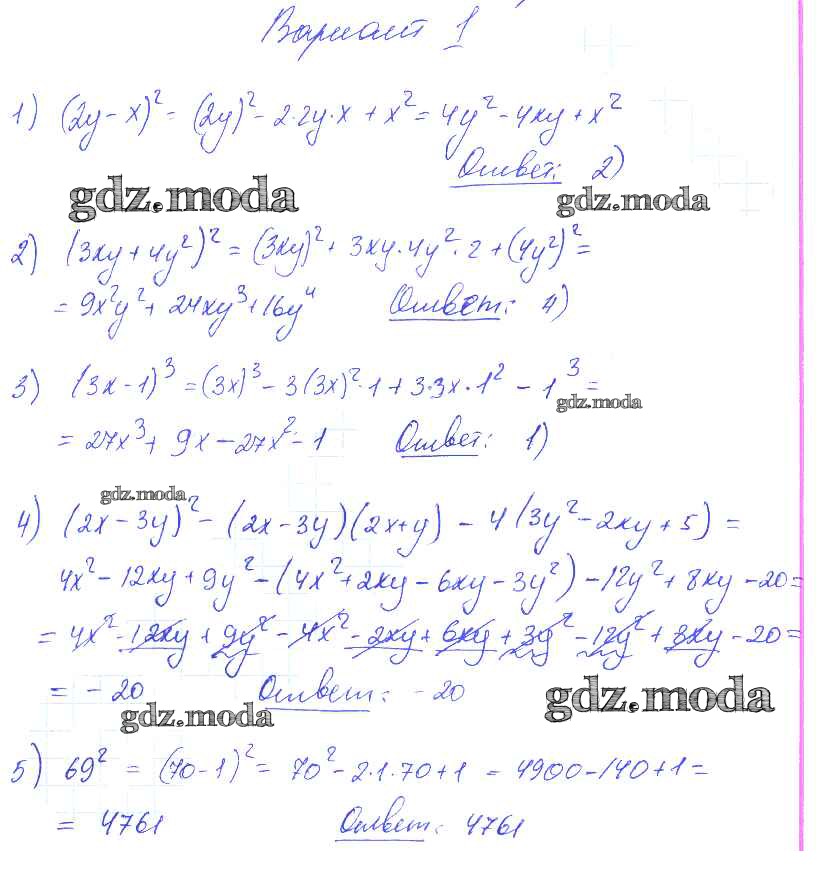 Вариант 1
1) (2y - x)² = (2y)² - 2·2y·x + x² = 4y² - 4xy + x²
Ответ: 2)
gdz.moda gdz.moda
2) (3xy + 4y²)² = (3xy)² + 3xy·4y²·2 + (4y²)² =
= 9x²y² + 24xy³ + 16y⁴ Ответ: 4)
3) (3x - 1)³ = (3x)³ - 3(3x)²·1 + 3·3x·1² - 1³ =
gdz.moda
= 27x³ + 9x - 27x² - 1 Ответ: 1)
gdz.moda
4) (2x - 3y)² - (2x - 3y)(2x + y) - 4(3y² - 2xy + 5) =
4x² - 12xy + 9y² - (4x² + 2xy - 6xy - 3y²) - 12y² + 8xy - 20 =
= 4x² - 12xy + 9y² - 4x² - 2xy + 6xy + 3y² - 12y² + 8xy - 20 =
= - 20 Ответ: - 20
gdz.moda gdz.moda
5) 69² = (70 - 1)² = 70² - 2·1·70 + 1 = 4900 - 140 + 1 =
= 4761 Ответ: 4761